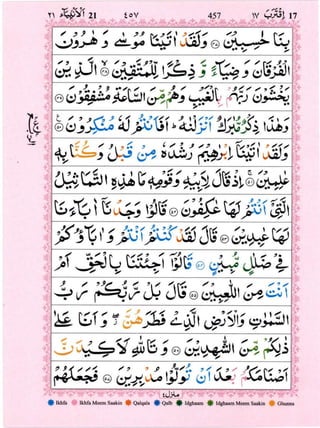 ٢١ اَلْاَنْۢبِيَآء 21 ٤٥٧ 457 ١٧ اِقْتَرَبَ 17
بِنَا حٰسِبِيْنَ ۝ وَلَقَدْ اٰتَيْنَا مُوْسٰى وَ هٰرُوْنَ
الْفُرْقَانَ وَ ضِيَآءً وَّ ذِكْرًا لِّلْمُتَّقِيْنَ ۝ الَّذِيْنَ
يَخْشَوْنَ رَبَّهُمْ بِالْغَيْبِ وَهُمْ مِّنَ السَّاعَةِ مُشْفِقُوْنَ ۝
وَهٰذَا ذِكْرٌ مُّبٰرَكٌ اَنْزَلْنٰهُ ؕ اَفَاَنْتُمْ لَهٗ مُنْكِرُوْنَ ۝
وَلَقَدْ اٰتَيْنَآ اِبْرٰهِيْمَ رُشْدَهٗ مِنْ قَبْلُ وَ كُنَّا بِهٖ
عٰلِمِيْنَ ۝ اِذْ قَالَ لِاَبِيْهِ وَقَوْمِهٖ مَا هٰذِهِ التَّمَاثِيْلُ
الَّتِيْٓ اَنْتُمْ لَهَا عٰكِفُوْنَ ۝ قَالُوْا وَجَدْنَآ اٰبَآءَنَا
لَهَا عٰبِدِيْنَ ۝ قَالَ لَقَدْ كُنْتُمْ اَنْتُمْ وَ اٰبَآؤُكُمْ
فِيْ ضَلٰلٍ مُّبِيْنٍ ۝ قَالُوْٓا اَجِئْتَنَا بِالْحَقِّ اَمْ
اَنْتَ مِنَ اللّٰعِبِيْنَ ۝ قَالَ بَلْ رَّبُّكُمْ رَبُّ
السَّمٰوٰتِ وَالْاَرْضِ الَّذِيْ فَطَرَهُنَّ ۖ وَ اَنَا عَلٰى
ذٰلِكُمْ مِّنَ الشّٰهِدِيْنَ ۝ وَ تَاللّٰهِ لَاَكِيْدَنَّ
اَصْنَامَكُمْ بَعْدَ اَنْ تُوَلُّوْا مُدْبِرِيْنَ ۝ فَجَعَلَهُمْ
منزل ٤
Ikhfa Ikhfa Meem Saakin Qalqala Qalb Idghaam Idghaam Meem Saakin Ghunna